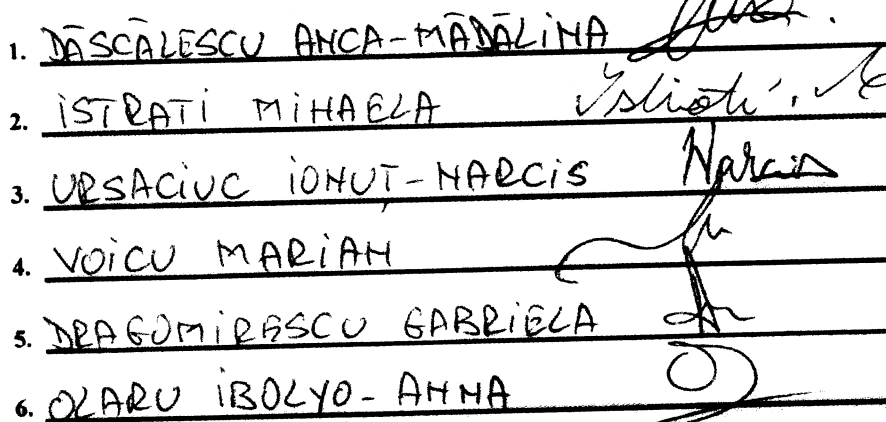 1. DĂSCĂLESCU ANCA-MĂDĂLINA
2. ISTRATI MIHAELA Istrati M
3. URSACIUC IONUȚ-NARCIS Narcis
4. VOICU MARIAN
5. DRAGOMIRESCU GABRIELA
6. OLARU IBOLYO-ANNA